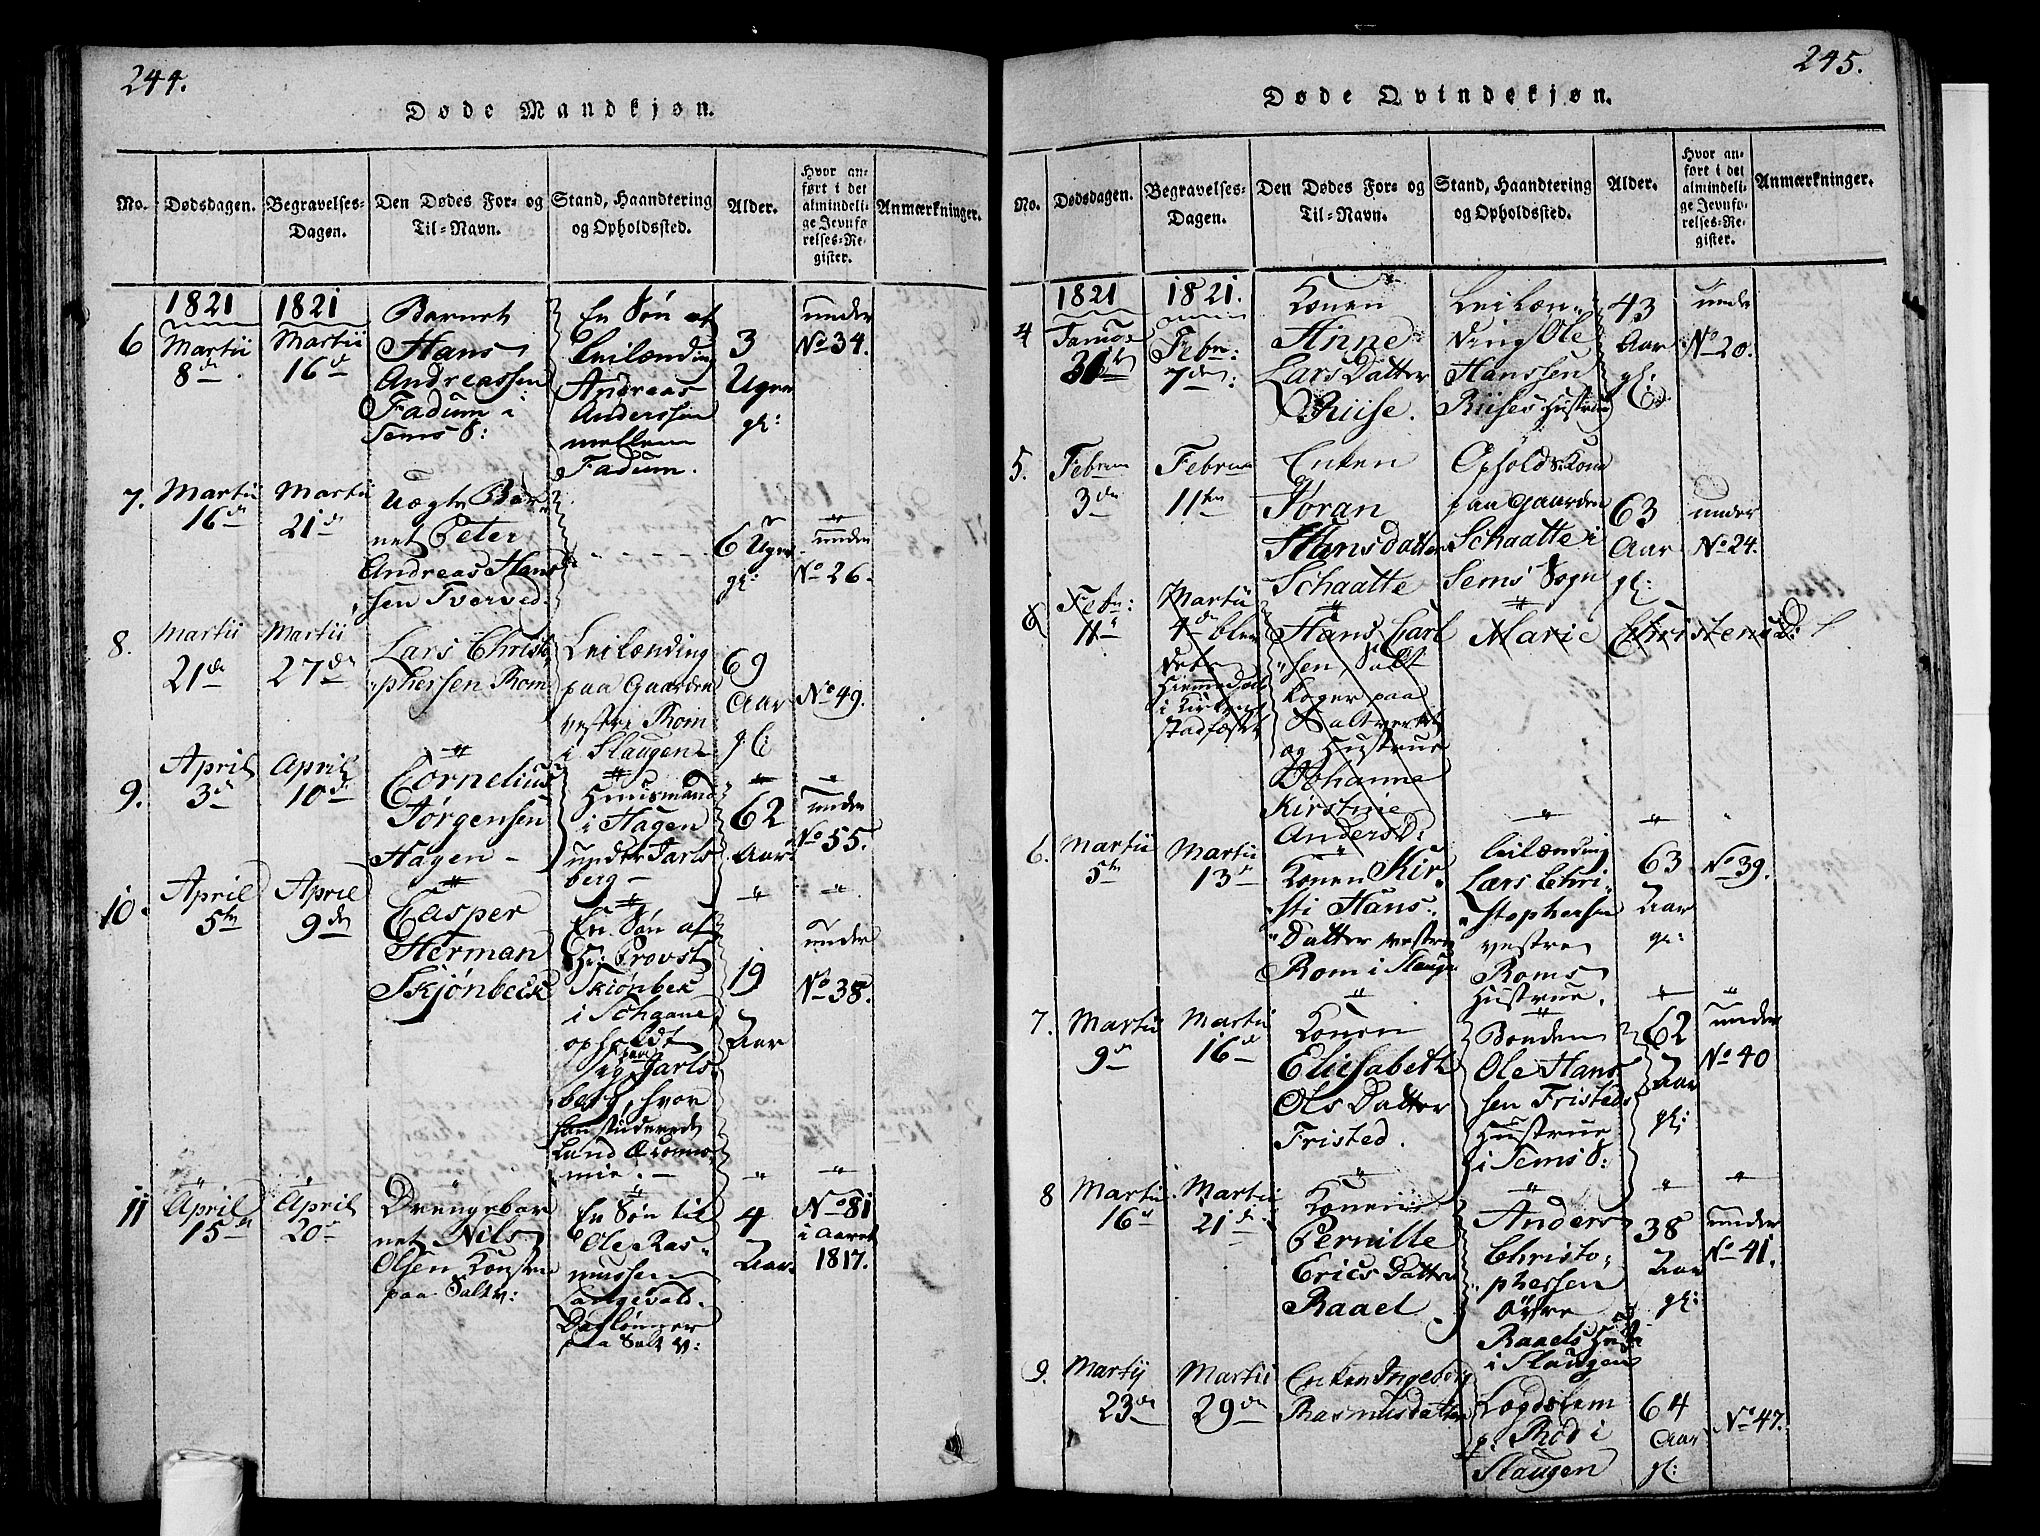 244.
Døde Mandkjøn.
No.
Dødsdagen.
Begravelses-
Dagen.
Den Dødes For- og
Til-Navn.
Stand, Haandtering
og Opholdssted.
Alder.
Hvor an-
ført i det
almindeli-
ge Jevnfø
relses-Re-
gister.
Anmærkninger.
6
1821
Martii
8de
1821
Martii
16de
Barnet
Hans
Andreassen
Fadum i
Sems S:
En Søn af
Leilænding
Andreas
Anderssen
mellem
Fadum.
3
Uger
gl:
under
No 34.
7.
Martii
16de
Martii
21de
Uægte Bar-
net Peter
Andreas Han-
sen Tverved.
6 Uger
gl:
under
No 26.
8.
Martii
21de
Martii
27de
Lars Christo-
phersen Rom
Leilænding
paa Gaarden
vestre Rom
i Slaugen
69
Aar
gl:
No 49.
9.
April
3de
April
10de
Cornelius
Jørgensen
Hagen
Huusmand
i Hagen
under Jarls-
berg
62
Aar
under
No 55.
10.
April
5te
April
9de
Casper
Herman
Skjønbeck
En Søn af
Hr: Provst
Skiønbek
i
opholdt
sig paa Jarls-
berg, hvor
han studerede
Land Oecono-
mie.
19
Aar
under
No 38.
11
April
15de
April
20de
Drengebar
net Nils
Olsen
paa Saltv:
En Søn til
Ole Ras-
mussen
Langevold.
Daglønner
paa Salt V:
4
Aar.
No 81
i Aaret
1817.
245.
Døde Qvindekjøn.
No.
Dødsdagen.
Begravelses-
Dagen.
Den Dødes For- og
Til-Navn.
Stand, Haandtering
og Opholdssted.
Alder.
Hvor an-
ført i det
almindeli-
ge Jevnfø-
relses-Re-
gister.
Anmærkninger.
4
1821
Januar
31te
1821.
Febr:
7de
Konen
Anne
Lars Datter
Riise.
Leilæn-
ding Ole
Hanssen
Riises Hustrue
43
Aar
gl:
under
No 20.
5.
Februar
3de
Februar
11te
Enken
Joran
Hansdatter
Schaatte
Opholdskone
paa Gaarden
Schaatte i
Sems Sogn
63
Aar
gl:
under
No 24.
6
Febr:
11te
Martii
4de blev
dets
Hiemmedaab
i Kirken
stadfæstet
Hans Carl
sen, Salt
koger paa
Saltverket
og Hustrue
Johanne
Kirstine
Anders D:
Marie
Christens D:
6.
Martii
5te
Martii
13de
Konen Kir-
sti Hans-
Datter vestre
Rom i Slaugen
Leilænding
Lars Chri-
stophersen
vestre
Roms
Hustrue.
63
Aar
gl:
No 39.
7.
Martii
9de
Martii
16de
Konen
Elisabeth
Ols Datter
Fristed.
Bonden
Ole Hans
sen Fristeds
Hustrue
i Sems S:
62
Aar
gl:
under
No 40
8
Martii
16de
Martii
21de
Konen
Pernille
Erics Datter
Raael
Anders
Christo-
phersen
øvre
Raaels
i Slaugen
38
Aar
gl:
under
No 41.
9.
Martij
23de
Martii
29de
Enken Ingeborg
Rasmusdatter
Lægdslem
p. Rød i
Slaugen
64
Aar
gl:
No 47.